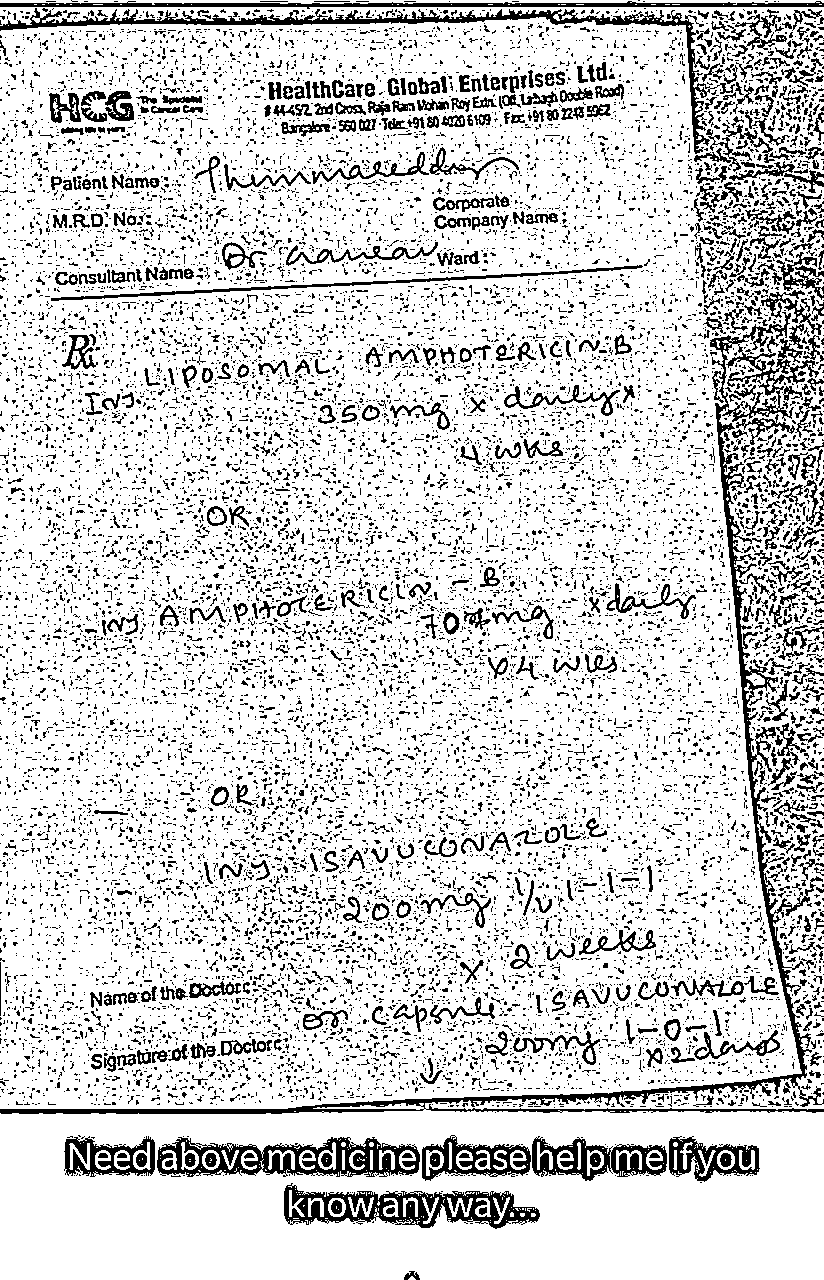 HCG The Specialist in Cancer Care
adding life to years
HealthCare Global Enterprises Ltd.
# 44-45/2, 2nd Cross, Raja Ram Mohan Roy Extn. (Off. Lalbagh Double Road)
Bangalore - 560 027 Tele: +91 80 4020 6109 Fax: +91 80 2248 5962
Patient Name : Thimmareddy
M.R.D. No. :
Corporate
Company Name :
Consultant Name : Dr Gaurav Ward :
Rx
Inj LIPOSOMAL AMPHOTERICIN-B
350 mg x daily x
4 wks
OR
Inj AMPHOTERICIN - B
70 mg x daily
x 4 wks
OR
INJ. ISAVUCONAZOLE
200 mg 1/v 1-1-1
x 2 weeks
Name of the Doctor :
or capsule ISAVUCONAZOLE
Signature of the Doctor :
200mg 1-0-1
x 2 days
Need above medicine please help me if you
know any way...